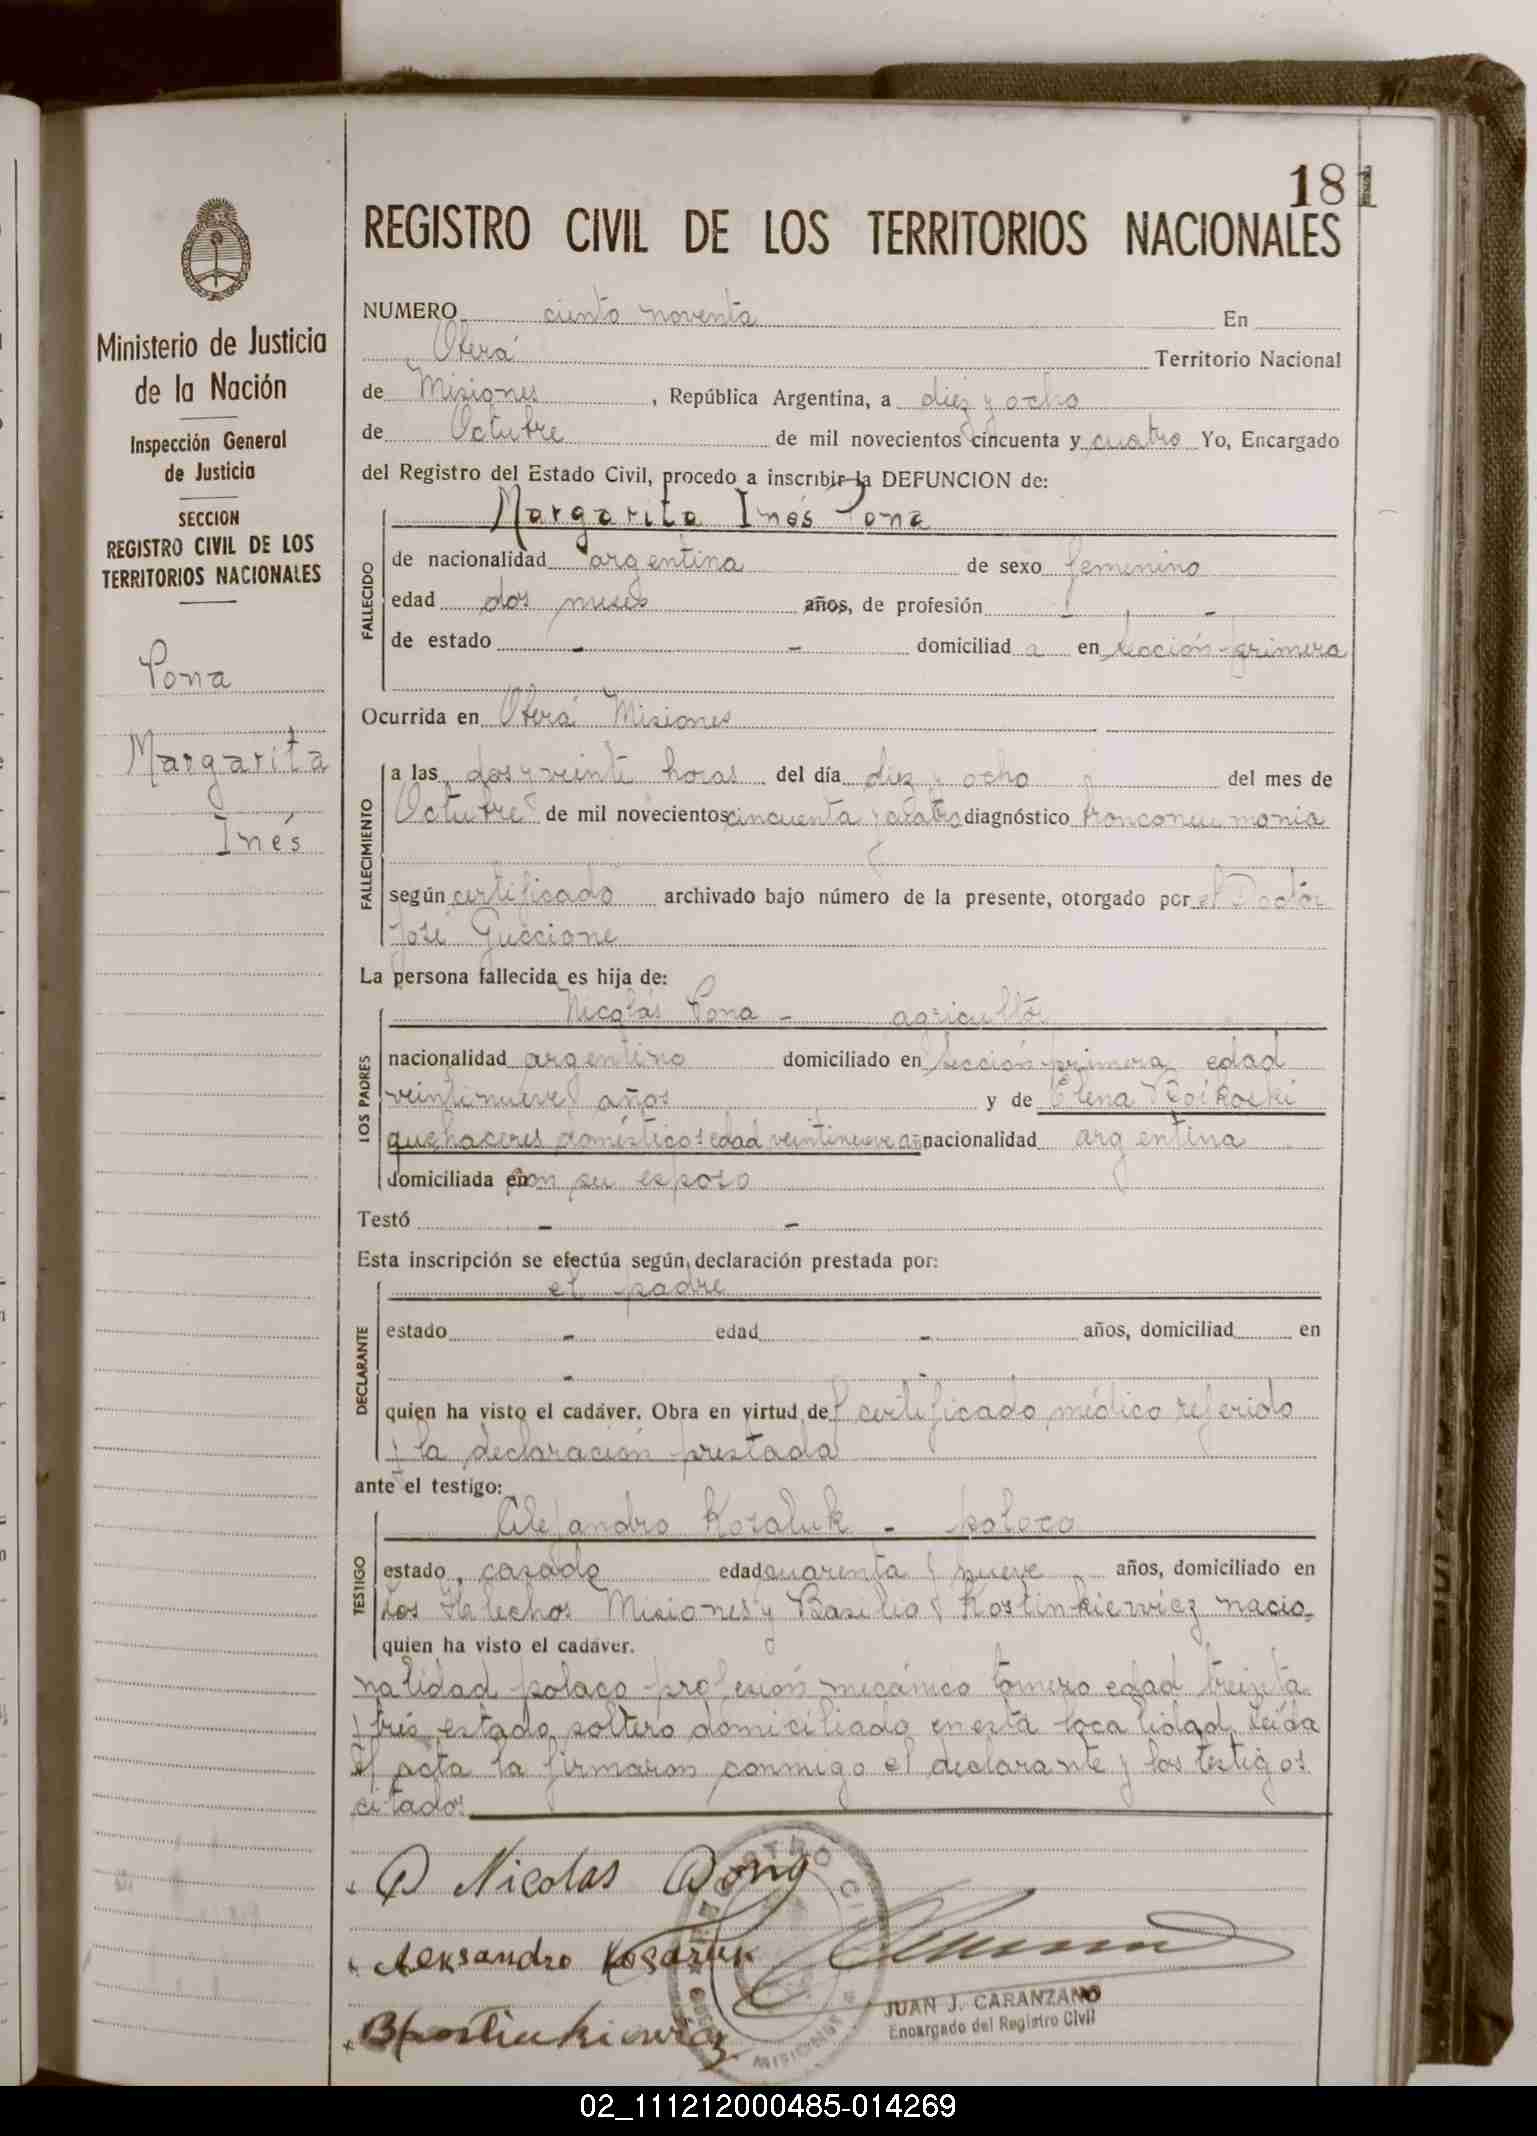 181
REGISTRO CIVIL DE LOS TERRITORIOS NACIONALES
Ministerio de Justicia
de la Nación
Inspección General
de Justicia
SECCION
REGISTRO CIVIL DE LOS
TERRITORIOS NACIONALES
Pona
Margarita
Inés
NUMERO ciento noventa En
Oberá Territorio Nacional
de Misiones, República Argentina, a diez y ocho
de Octubre de mil novecientos cincuenta y cuatro Yo, Encargado
del Registro del Estado Civil, procedo a inscribir la DEFUNCION de:
Margarita Inés Pona
FALLECIDO
de nacionalidad argentina de sexo femenino
edad dos meses años, de profesión - -
de estado - - domiciliad a en sección primera
Ocurrida en Oberá Misiones
FALLECIMIENTO
a las dos y veinte horas del día diez y ocho del mes de
Octubre de mil novecientos cincuenta y cuatro diagnóstico bronconeumonia
según certificado archivado bajo número de la presente, otorgado por el Doctor
José Guccione
La persona fallecida es hija de:
LOS PADRES
Nicolás Pona - agricultor
nacionalidad argentino domiciliado en sección primera edad
veintinueve años y de Elena Roikoski
quehaceres domésticos edad veintinueve añ nacionalidad argentina
domiciliada en con su esposo
Testó - -
Esta inscripción se efectúa según declaración prestada por:
DECLARANTE
el padre
estado - edad - años, domiciliad en
-
quien ha visto el cadáver. Obra en virtud del certificado médico referido
y la declaración prestada
ante el testigo:
TESTIGO
Alejandro Kozaluk - polaco
estado casado edad cuarenta y nueve años, domiciliado en
Los Helechos Misiones y Basilio Kostinkiewicz nacio-
quien ha visto el cadáver.
nalidad polaco profesión mecánico tornero edad treinta
y tres estado soltero domiciliado en esta localidad leída
el acta la firmaron conmigo el declarante y los testigos
citados
Nicolas Pona
Aleksandro Kozaruk
BKostiukiewicz
MISIONES
JUAN J. CARANZANO
Encargado del Registro Civil
02_111212000485-014269